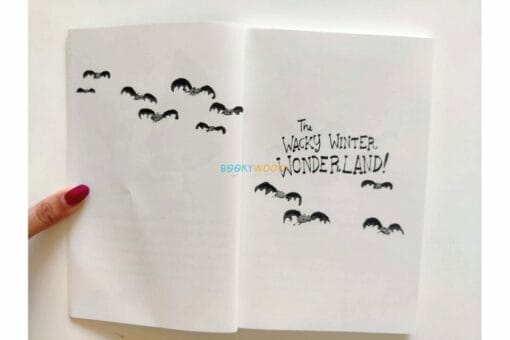 The
WACKY WINTER
WONDERLAND!
BOOKYWOOKY